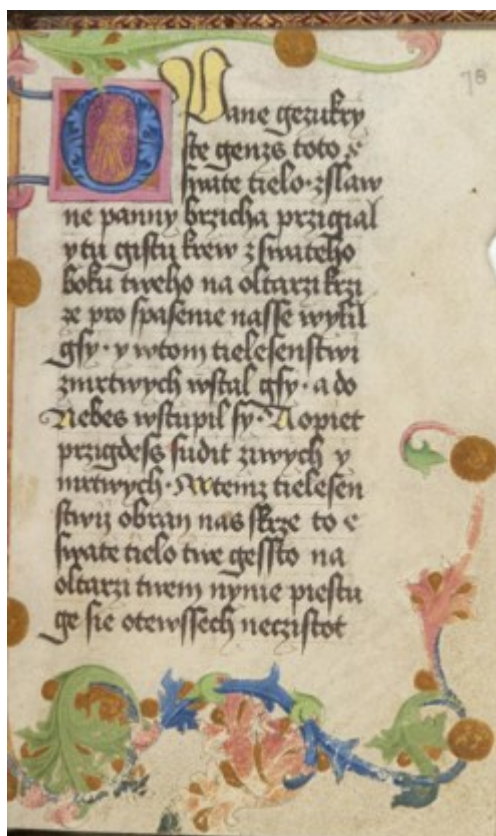 78
O Pane gezukry
ste genzs toto s
swate tielo zslaw
ne panny brzicha przigial
y tu gistu krew z swateho
boku tweho na oltarzi krzi
ze pro spasenie nasse wylil
gsy · y wtom tielesenstwi
zmrtwych wstal gsy · a do
Nebes wstupil sy · A opiet
przigdess sudit ziwych y
mrtwych · A temz tielesen
stwij obran nas skrze to s
swate tielo twe gessto na
oltarzi twem nynie piestu
ge sie otewssech neczistot